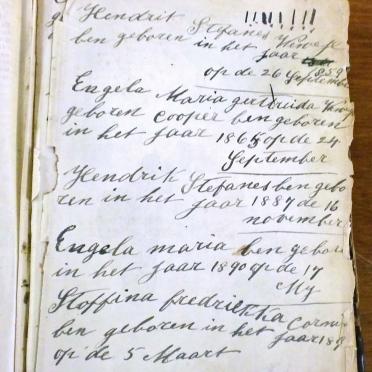 Hendrik Stefanes
ben geboren in het jaar 1859
op de 26 September
Engela Maria gertruida
geboren Cooper ben geboren
in het jaar 1865 op de 24
September
Hendrik Stefanes ben gebo
ren in het jaar 1887 de 16
november
Engela maria ben geboren
in het jaar 1890 op de 17
My
Stoffina fredriekha
ben geboren in het jaar
op de 5 Maart